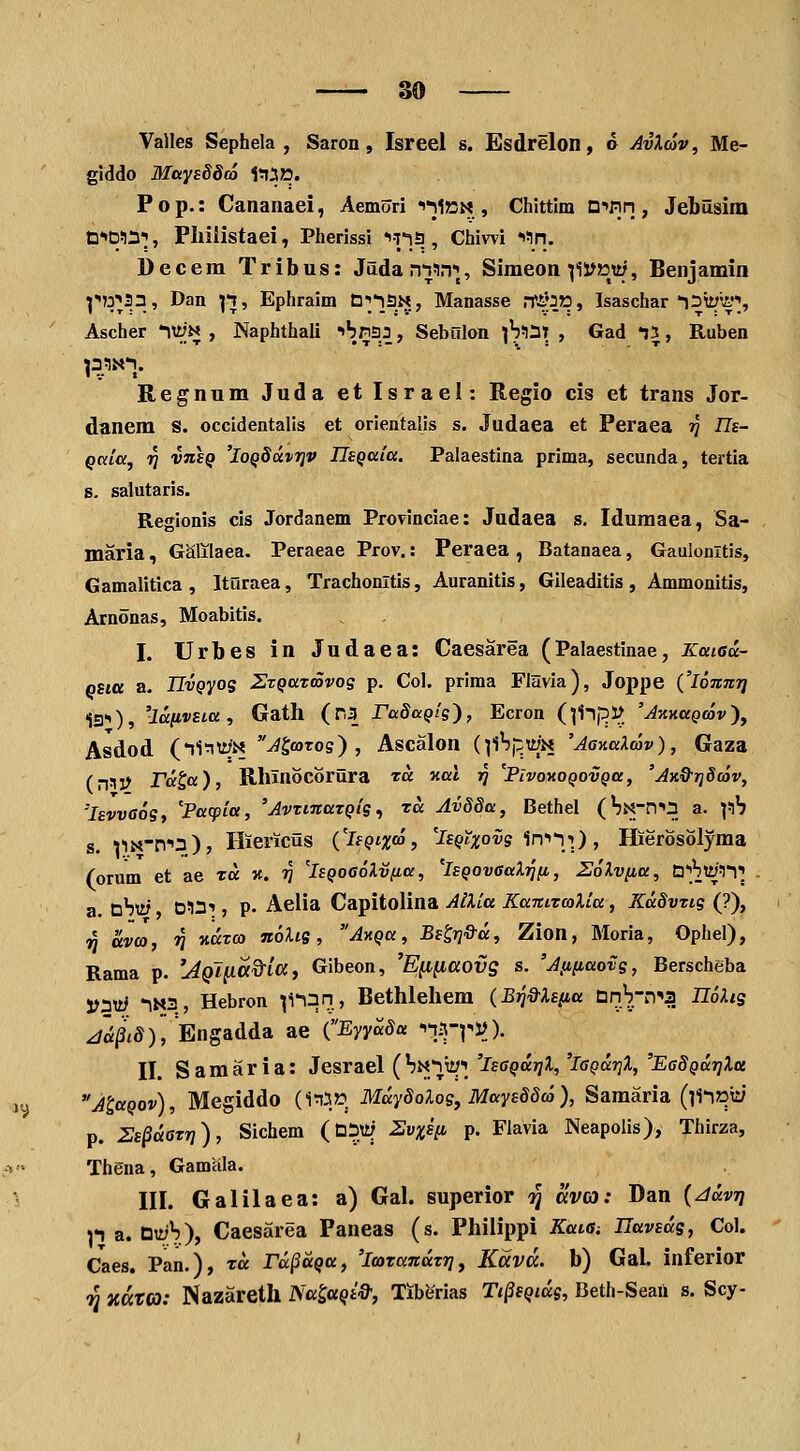 30
Valles Sephela , Saron , Isreel s. Esdrēlon , ὁ Αὐλών, Me-
giddo Μαγεδδώ מְגִדּוֹ.
Pop.: Cananaei, Aemōri אֱמֹוֹרִי, Chittim חִתִּים, Jebūsim
יְבוּסִים, Philistaei, Pherissi פְּרִזִּי, Chivvi חִוִּי.
Decem Tribus: Jūda יְהוּדָה, Simeon שִׁמְעוֹן, Benjamin
בִּנְיָמִין, Dan דָּן, Ephraim אֶפְרַיִם, Manasse מְנַשֶּׁה, Isaschar יִשָּׂשכָר,
Ascher אָשֵׁר , Naphthali נַפְתָּלִי, Sebūlon זְבוּלֻן , Gad גָּד, Ruben
רְאוּבֵן.
Regnum Juda et Israel: Regio cis et trans Jor-
danem s. occidentalis et orientalis s. Judaea et Peraea ἡ Πε-
ραία, ἡ ὑπὲρ Ἰορδάνην Περαία. Palaestina prima, secunda, tertia
s. salutaris.
Regionis cis Jordanem Provinciae: Judaea s. Idumaea, Sa-
māria, Gălĭlaea. Peraeae Prov.: Peraea , Batanaea, Gaulonītis,
Gamalitica , Itūraea, Trachonītis, Auranitis, Gileaditis , Ammonitis,
Arnōnas, Moabitis.
I. Urbes in Judaea: Caesārēa (Palaestinae, Καισά-
ρεια a. Πύργος Στράτωνος p. Col. prima Flāvia), Joppe (Ἰόππη
יָפוֹ), Ἰάμνεια, Gath (גַּת Γαδαρίς), Ecron (עֶקְרוֹן Ἀκκαρών),
Asdod (אַשְׁדּוֹד Ἄζωτος) , Ascălon (אַשְׁקְלוֹן Ἀσκαλών), Gaza
(עַזָּה Γάζα), Rhīnŏcŏrūra τὰ καὶ ἡ Ῥινοκορούρα, Ἀνθηδών,
Ἰεννσός, Ῥαφία, Ἀντιπατρίς, τὰ Λύδδα, Bethel (בֵּית-אֵל a. לוּז
s. בֵּית-אָוֶן), Hierĭcūs (Ἱεριχώ, Ἱεριχοῦς יְרִיחוֹ), Hĭĕrŏsŏlyma
(orum et ae τὰ κ. ἡ Ἱεροσόλυμα, Ἱερουσαλήμ, Σόλυμα, יְרוּשָׁלַיִם
a. שָׁלֵם, יְבוּס, p. Aelia Capitolina Αἰλία Καπιτωλία, Κάδυτις (?),
ἡ ἄνω, ἡ κάτω πόλις, Ἄκρα, Βεζηθά, Zion, Moria, Ophel),
Rama p. Ἀριμαθία, Gibeon, Ἐμμαοῦς s. Ἀμμαούς, Berschĕba
בְּאֵר שֶׁבַע, Hebron חֶבְרוֹן, Bethlehem (Βηθλεμα בֵּית-לֶחֶם Πόλις
Δάβιδ), Engadda ae (Ἔγγαδα עֵין-גֶּדִי).
II. Samāria: Jesrael (יִזְרְעֶאל Ἰεσράηλ, Ἰσράηλ, Ἐσδράηλα
Ἄζαρον), Megiddo (מְגִדּוֹ Μάγδολος, Μαγεδδώ), Samāria (שֹׁמְרוֹן
p. Σεβάστη), Sichem (שְׁכֶם Συχέμ p. Flavia Neapolis), Thirza,
Thēna, Gamăla.
III. Galilaea: a) Gal. superior ἡ ἄνω: Dan (Δάνη
דָּן a. לֶשֶׁם), Caesārēa Paneas (s. Philippi Καισ. Πανεάς, Col.
Caes. Pan.), τὰ Γάβαρα, Ἰωταπάτη, Κάνά. b) Gal. inferior
ἡ κάτω: Nazāreth Ναζαρέθ, Tĭbĕrias Τιβεριάς, Beth-Sean s. Scy-